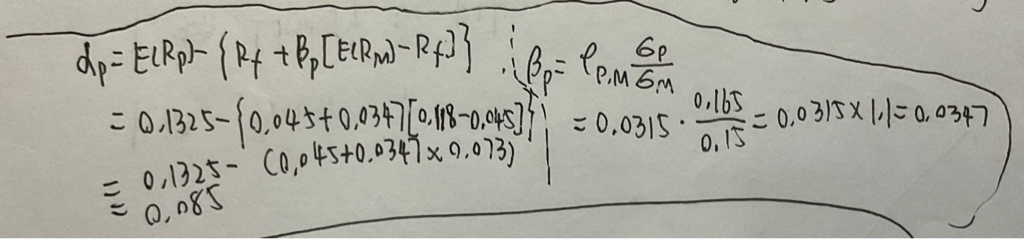 αp = E(Rp) - {Rf + βp[E(RM) - Rf]}
= 0.1325 - {0.045 + 0.0347[0.118 - 0.045]}
= 0.1325 - (0.045 + 0.0347 × 0.073)
= 0.085
βp = ρp,M σp/σM
= 0.0315 · 0.165/0.15 = 0.0315 × 1.1 = 0.0347